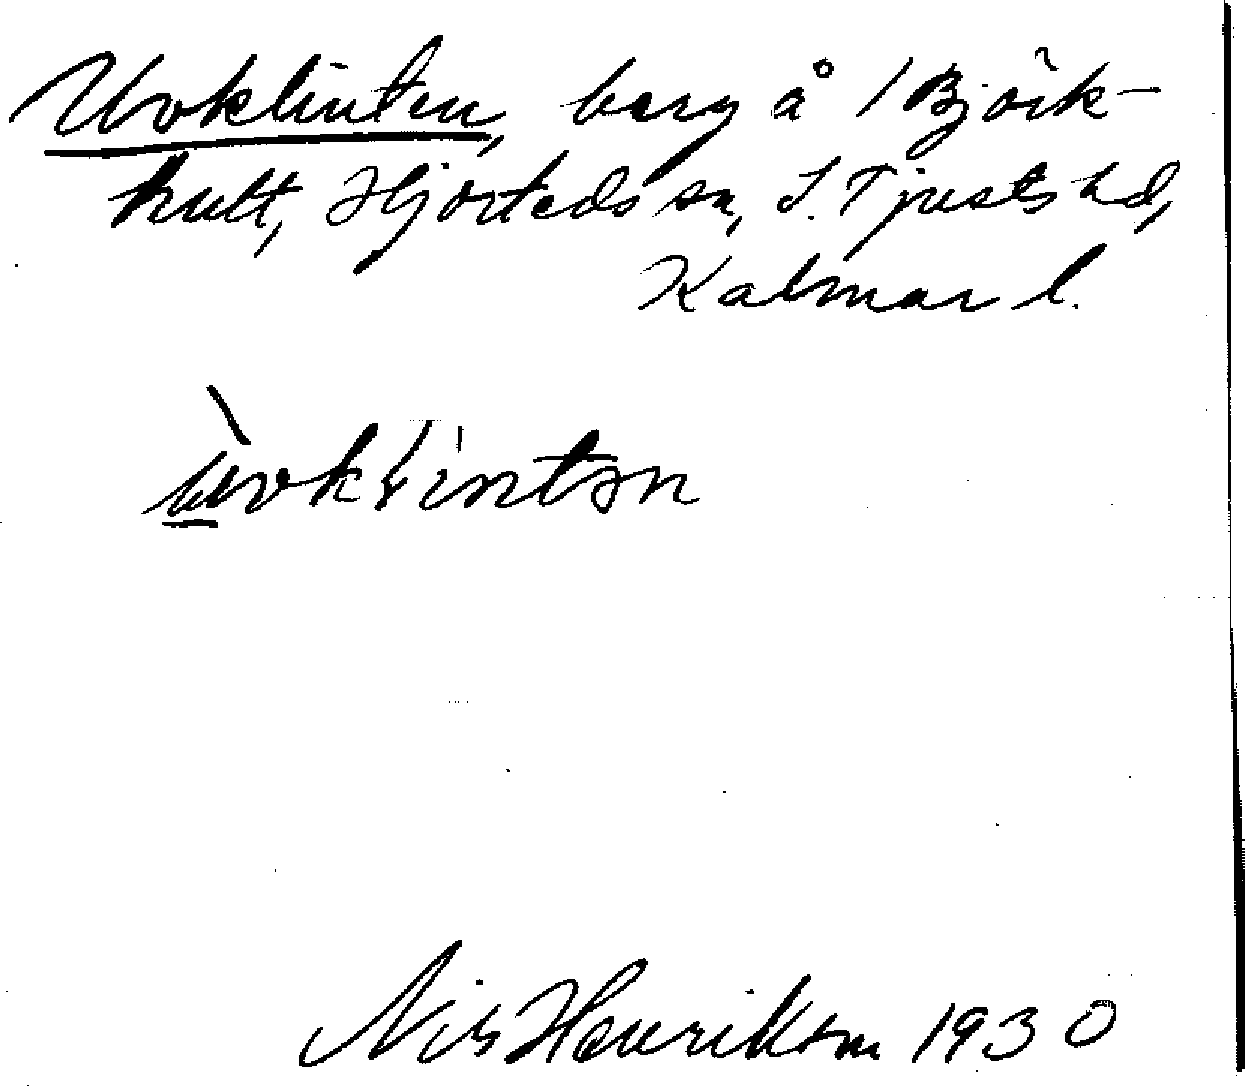 Uvklinten, berg å 1 Björk-
hult, Hjorteds sn, S. Tjusts hd,
Kalmar l.
Nils Henrikson 1930